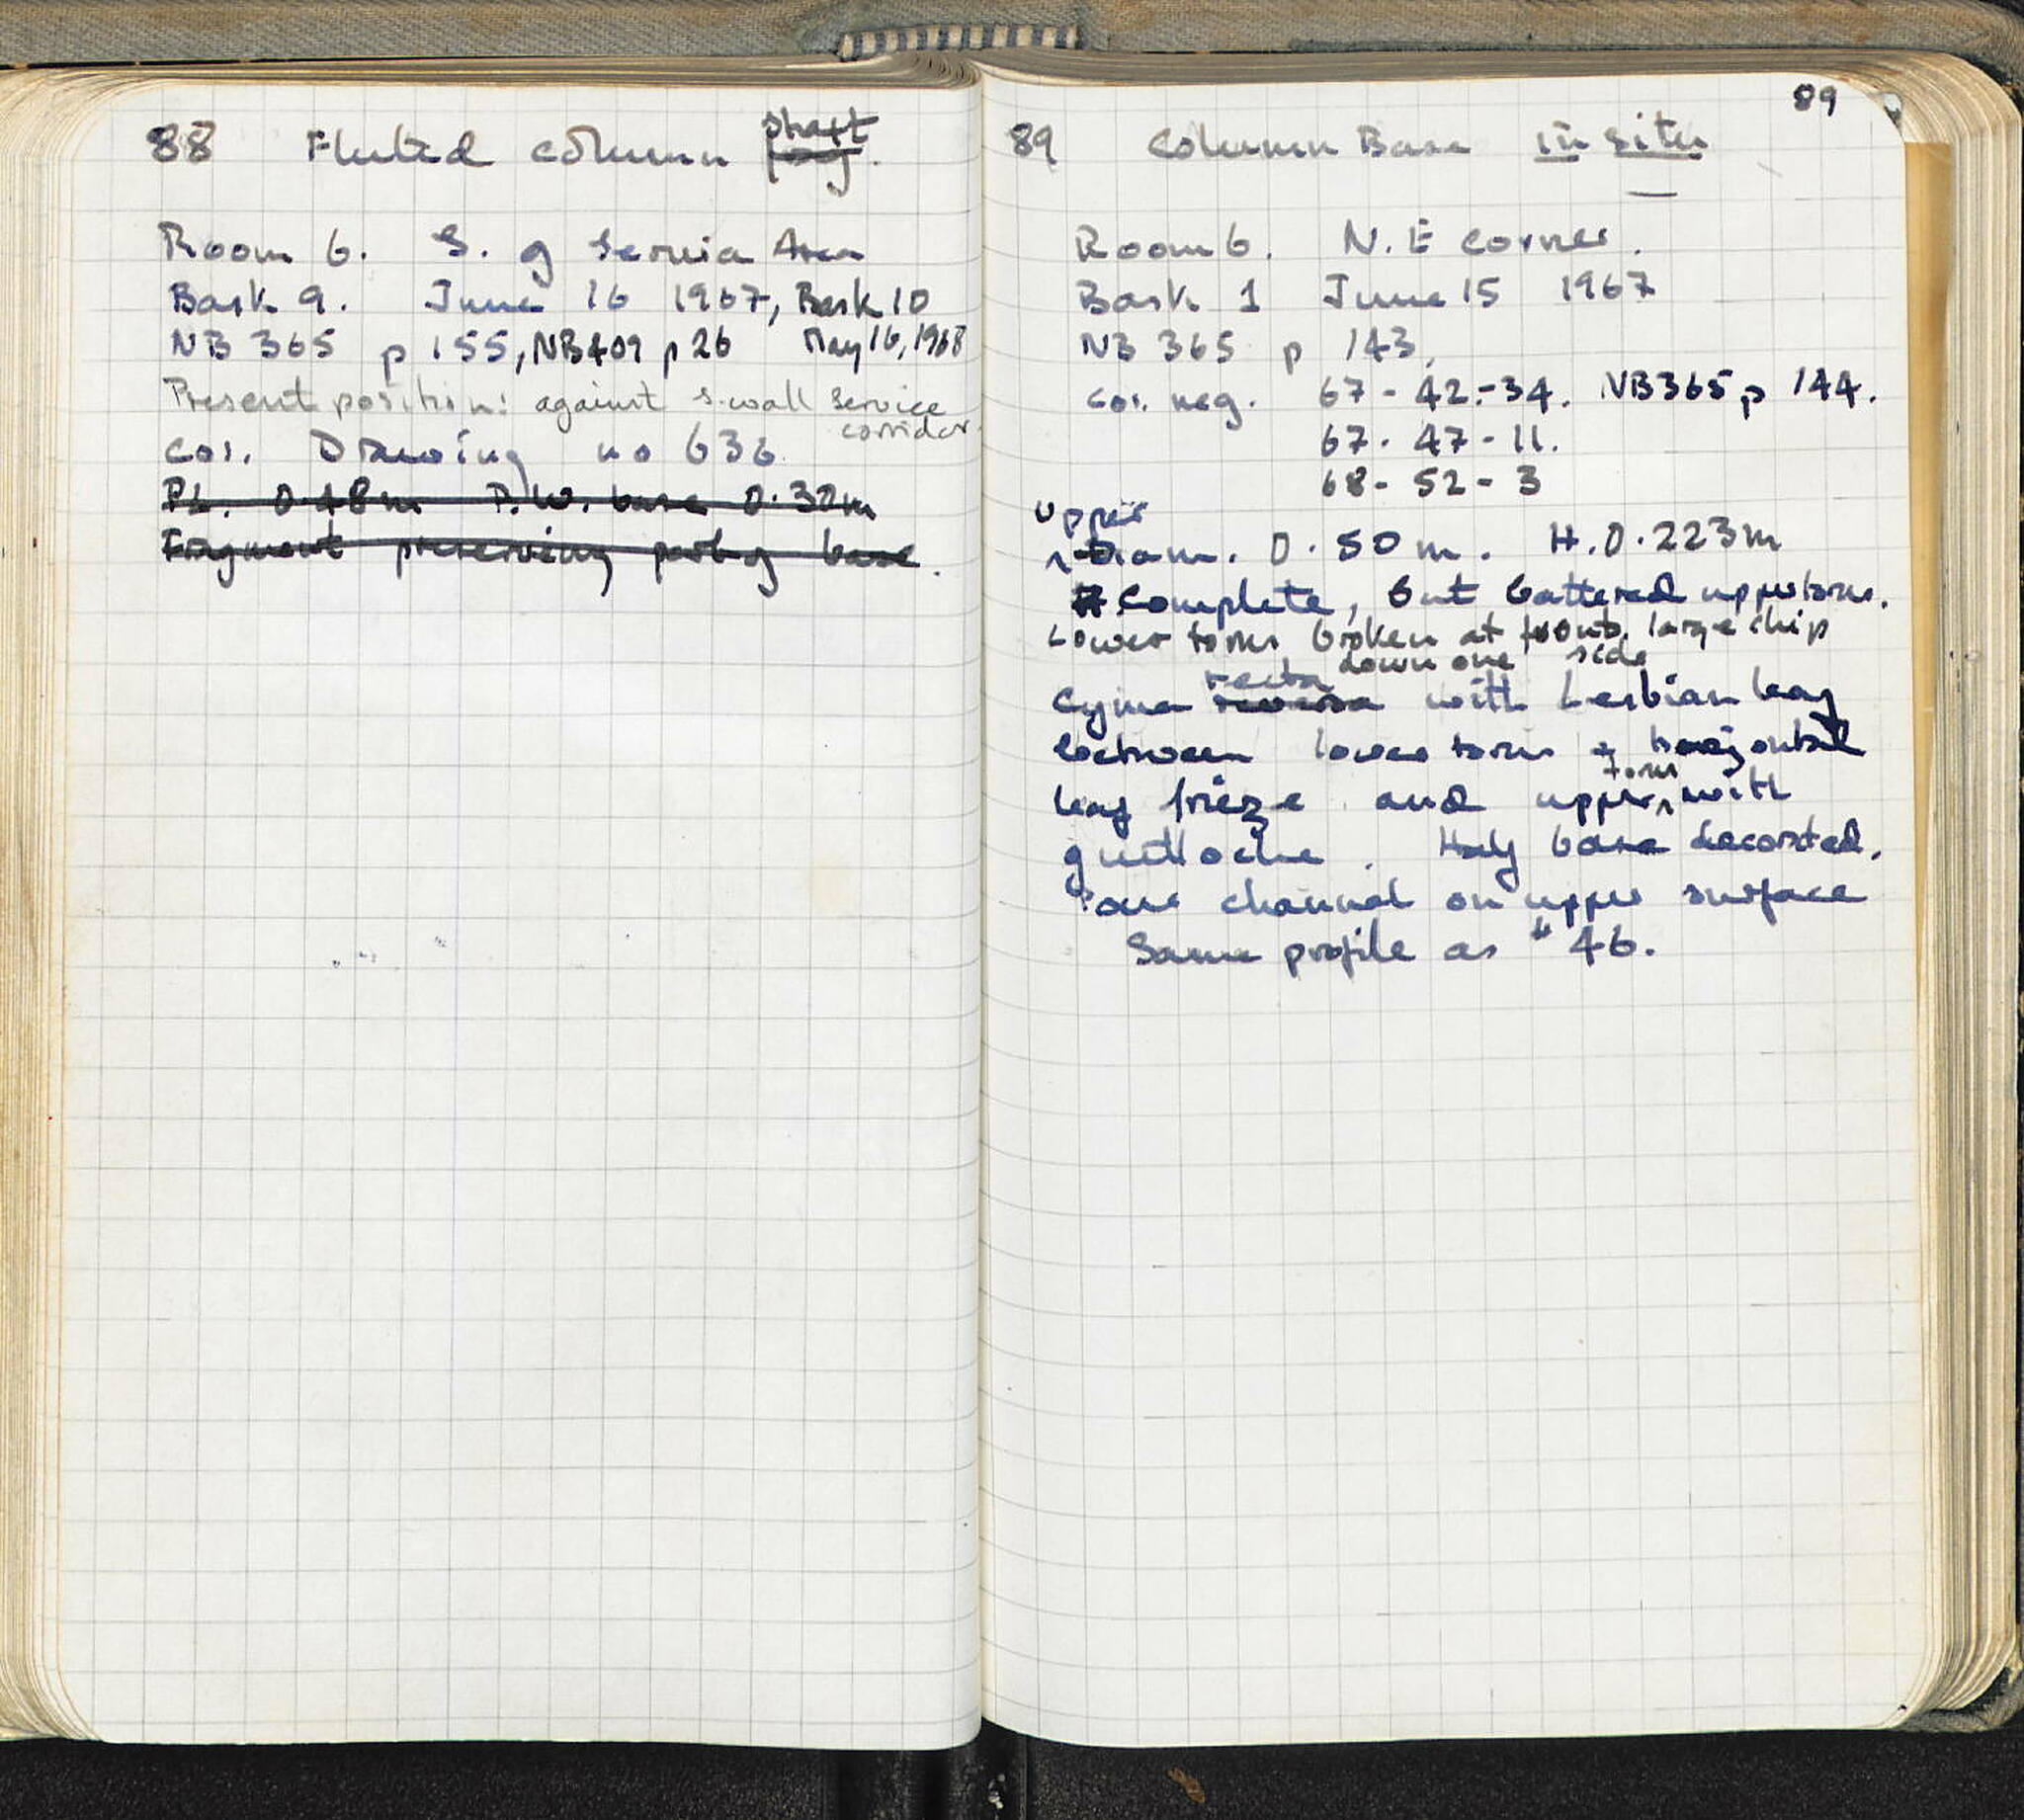 88 Fluted column shaft frag.
Room 6. S. of Service Area
Bask 9. June 16 1967, Bask 10
NB 365 p 155, NB409 p 26 May 16, 1968
Present position: against S. wall service
corridor.
Cor. Drawing no 636
P.L. 0.48m P.W. base 0.30m
Fragment preserving part of base.
89
89 Column Base in situ
Room 6. N.E corner.
Bask 1 June 15 1967
NB 365 p 143,
Cor. neg. 67-42-34. NB365 p 144.
67-47-11.
68-52-3
upper
Diam. 0.50m. H. 0.223m
Complete, but battered upper torus.
Lower torus broken at front, large chip
down one side
recta
Cyma reversa with Lesbian leaf
between lower torus + horizontal
torus
leaf frieze and upper with
guilloche. Half base decorated.
Pour channel on upper surface
Same profile as # 46.